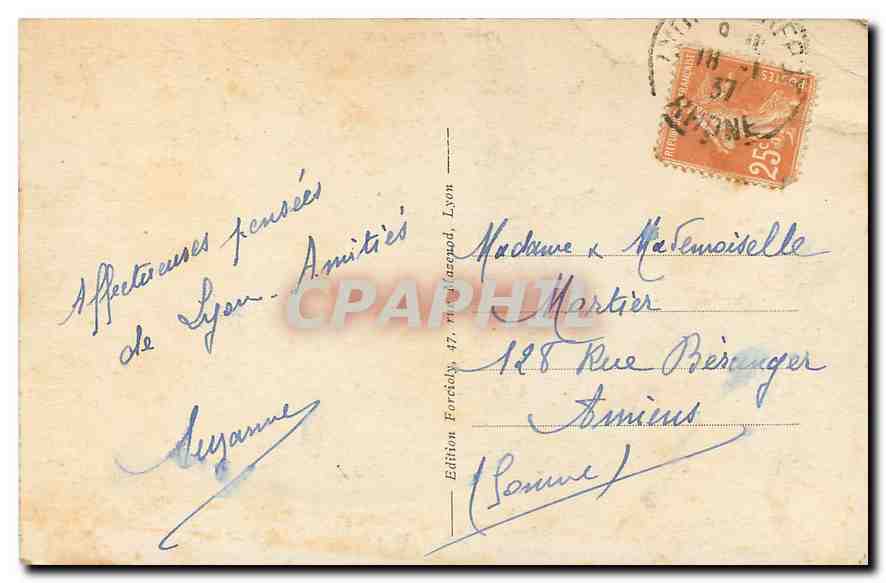 Affectueuses pensées
de Lyon - Amitiés
Suzanne
Edition Forcioly, 47, rue Mazenod, Lyon
Madame & Mademoiselle
Martier
128 Rue Béranger
Amiens
(Somme)
18 -1
37
RHONE
POSTES
25c
CPAPHIL